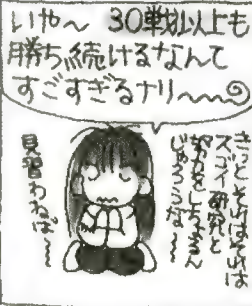 いや〜 30戦以上も
勝ち続けるなんて
すごすぎるナリ〜〜〜
きっとそれはそれは
スゴイ研究と
努力をしちょるん
じゃろうな〜
見習わねば〜